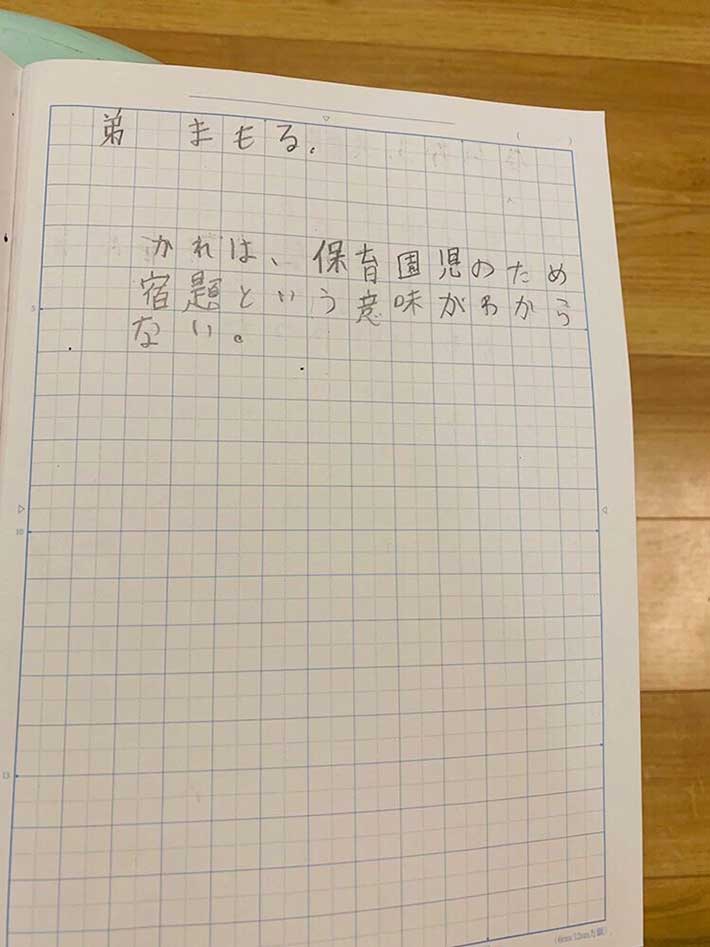 弟 まもる。
かれは、保育園児のため
宿題という意味がわから
ない。
5
10